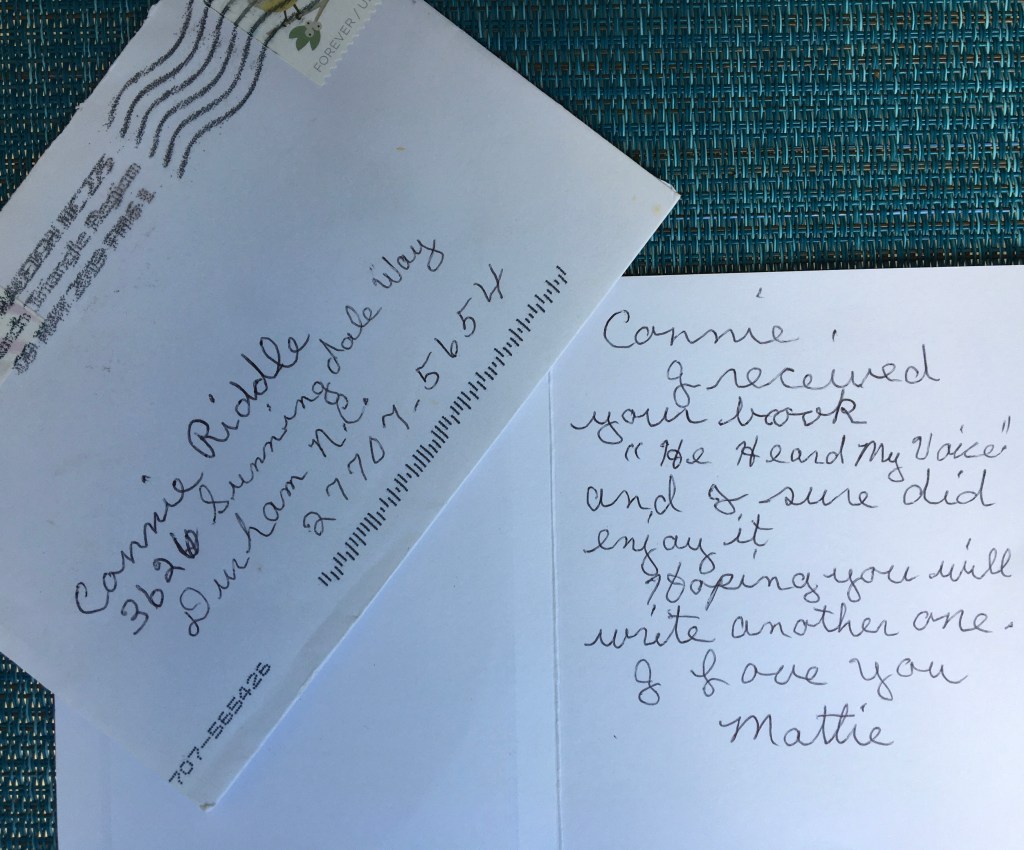 FOREVER / U
RALEIGH NC 275
Triangle Region
2019 PM 6 L
Connie Riddle
3626 Sunningdale Way
Durham N.C.
27707-5654
707-565426
Connie,
I received
your book
"He Heard My Voice"
and I sure did
enjoy it
Hoping you will
write another one.
I Love you
Mattie